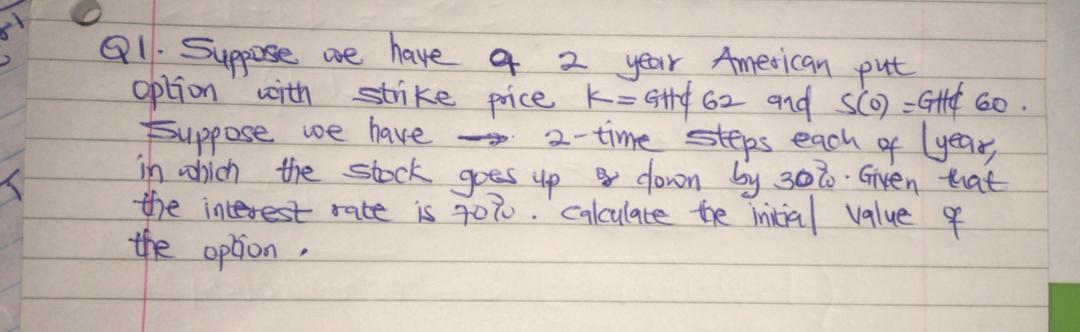 Q1. Suppose we have a 2 year American put
option with strike price K = GH¢ 62 and S(0) = GH¢ 60.
Suppose we have → 2-time steps each of 1year,
in which the stock goes up & down by 30%. Given that
the interest rate is 70%. Calculate the initial value of
the option.